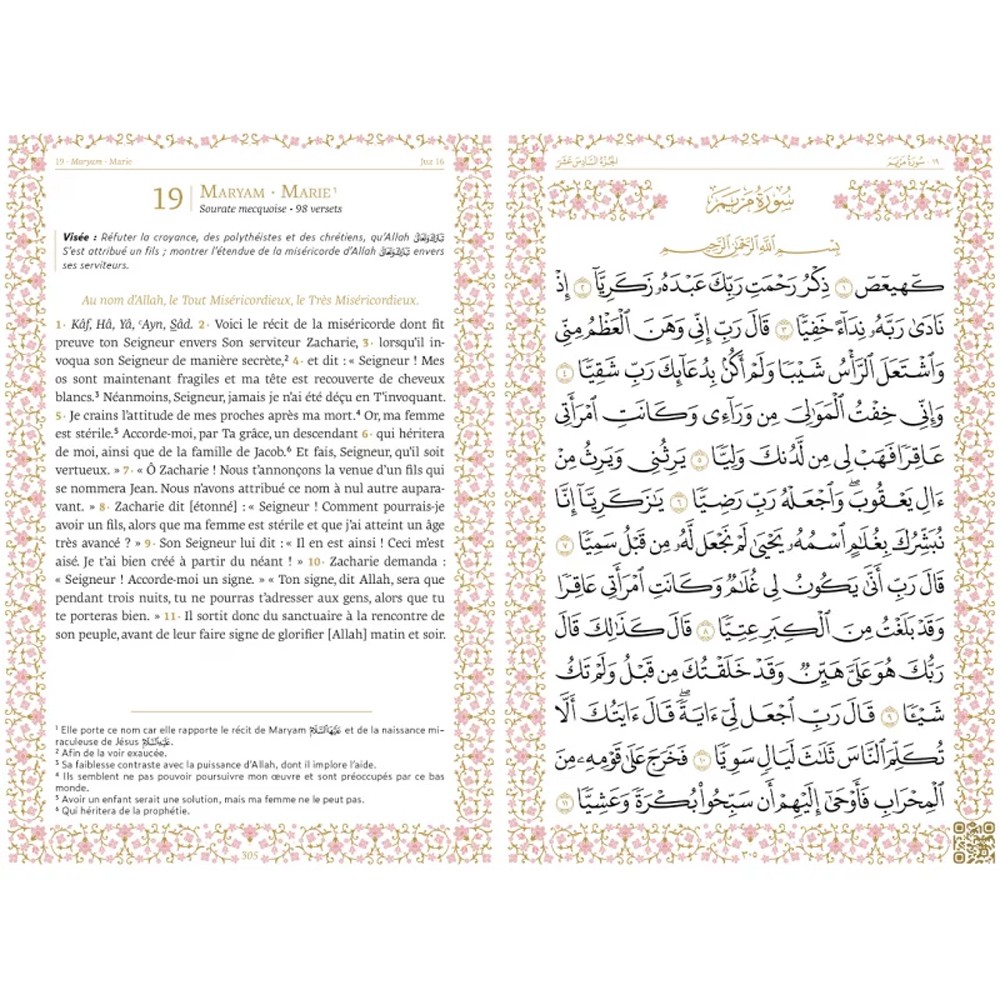 19 · Maryam · Marie
Juz 16
19 | MARYAM · MARIE¹
Sourate mecquoise • 98 versets
Visée : Réfuter la croyance, des polythéistes et des chrétiens, qu'Allah تبارك وتعالى
S'est attribué un fils ; montrer l'étendue de la miséricorde d'Allah تبارك وتعالى envers
ses serviteurs.
Au nom d'Allah, le Tout Miséricordieux, le Très Miséricordieux.
1· Kâf, Hâ, Yâ, ʿAyn, Sâd. 2· Voici le récit de la miséricorde dont fit
preuve ton Seigneur envers Son serviteur Zacharie, 3· lorsqu'il in-
voqua son Seigneur de manière secrète,² 4· et dit : « Seigneur ! Mes
os sont maintenant fragiles et ma tête est recouverte de cheveux
blancs.³ Néanmoins, Seigneur, jamais je n'ai été déçu en T'invoquant.
5· Je crains l'attitude de mes proches après ma mort.⁴ Or, ma femme
est stérile.⁵ Accorde-moi, par Ta grâce, un descendant 6· qui héritera
de moi, ainsi que de la famille de Jacob.⁶ Et fais, Seigneur, qu'il soit
vertueux. » 7· « Ô Zacharie ! Nous t'annonçons la venue d'un fils qui
se nommera Jean. Nous n'avons attribué ce nom à nul autre aupara-
vant. » 8· Zacharie dit [étonné] : « Seigneur ! Comment pourrais-je
avoir un fils, alors que ma femme est stérile et que j'ai atteint un âge
très avancé ? » 9· Son Seigneur lui dit : « Il en est ainsi ! Ceci m'est
aisé. Je t'ai bien créé à partir du néant ! » 10· Zacharie demanda :
« Seigneur ! Accorde-moi un signe. » « Ton signe, dit Allah, sera que
pendant trois nuits, tu ne pourras t'adresser aux gens, alors que tu
te porteras bien. » 11· Il sortit donc du sanctuaire à la rencontre de
son peuple, avant de leur faire signe de glorifier [Allah] matin et soir.
¹ Elle porte ce nom car elle rapporte le récit de Maryam عليها السلام et de la naissance mi-
raculeuse de Jésus عليه السلام.
² Afin de la voir exaucée.
³ Sa faiblesse contraste avec la puissance d'Allah, dont il implore l'aide.
⁴ Ils semblent ne pas pouvoir poursuivre mon œuvre et sont préoccupés par ce bas
monde.
⁵ Avoir un enfant serait une solution, mais ma femme ne le peut pas.
⁶ Qui héritera de la prophétie.
305
١٩ · سُورَةُ مَرْيَمَ
الجُزْءُ السَّادِسَ عَشَرَ
سُورَةُ مَرْيَمَ
بِسْمِ ٱللَّهِ ٱلرَّحْمَٰنِ ٱلرَّحِيمِ
كٓهيعٓصٓ ١ ذِكْرُ رَحْمَتِ رَبِّكَ عَبْدَهُۥ زَكَرِيَّآ ٢ إِذْ
نَادَىٰ رَبَّهُۥ نِدَآءً خَفِيًّا ٣ قَالَ رَبِّ إِنِّى وَهَنَ ٱلْعَظْمُ مِنِّى
وَٱشْتَعَلَ ٱلرَّأْسُ شَيْبًا وَلَمْ أَكُنۢ بِدُعَآئِكَ رَبِّ شَقِيًّا ٤
وَإِنِّى خِفْتُ ٱلْمَوَٰلِىَ مِن وَرَآءِى وَكَانَتِ ٱمْرَأَتِى
عَاقِرًا فَهَبْ لِى مِن لَّدُنكَ وَلِيًّا ٥ يَرِثُنِى وَيَرِثُ مِنْ
ءَالِ يَعْقُوبَ ۖ وَٱجْعَلْهُ رَبِّ رَضِيًّا ٦ يَٰزَكَرِيَّآ إِنَّا
نُبَشِّرُكَ بِغُلَٰمٍ ٱسْمُهُۥ يَحْيَىٰ لَمْ نَجْعَل لَّهُۥ مِن قَبْلُ سَمِيًّا ٧
قَالَ رَبِّ أَنَّىٰ يَكُونُ لِى غُلَٰمٌ وَكَانَتِ ٱمْرَأَتِى عَاقِرًا
وَقَدْ بَلَغْتُ مِنَ ٱلْكِبَرِ عِتِيًّا ٨ قَالَ كَذَٰلِكَ قَالَ
رَبُّكَ هُوَ عَلَىَّ هَيِّنٌ وَقَدْ خَلَقْتُكَ مِن قَبْلُ وَلَمْ تَكُ
شَيْـًٔا ٩ قَالَ رَبِّ ٱجْعَل لِّىٓ ءَايَةً ۚ قَالَ ءَايَتُكَ أَلَّا
تُكَلِّمَ ٱلنَّاسَ ثَلَٰثَ لَيَالٍ سَوِيًّا ١٠ فَخَرَجَ عَلَىٰ قَوْمِهِۦ مِنَ
ٱلْمِحْرَابِ فَأَوْحَىٰٓ إِلَيْهِمْ أَن سَبِّحُوا۟ بُكْرَةً وَعَشِيًّا ١١
٣٠٥